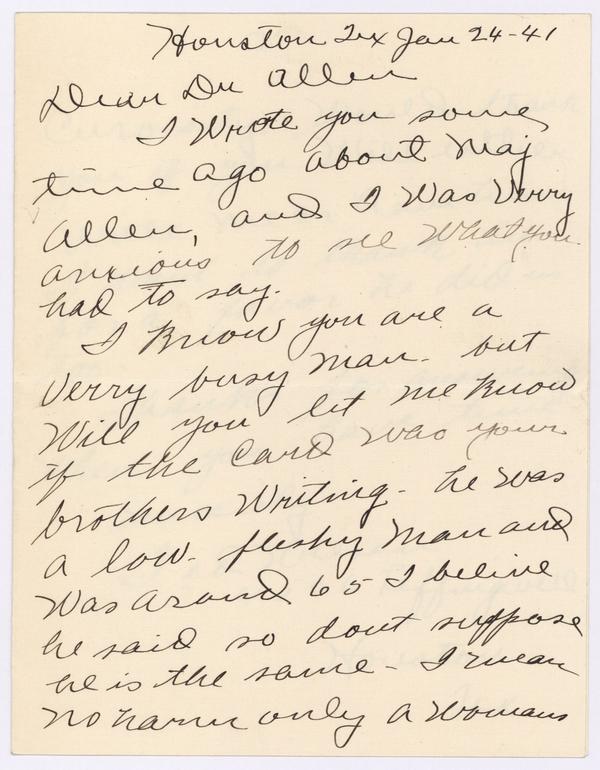 Houston Tex Jan 24-41
Dear Dr Allen
I Wrote you some
time ago about Maj
Allen, and I Was Verry
anxious to see What you
had to say.
I Know you are a
Verry busy Man. but
Will you let me Know
if the Card was your
brothers Writing - he was
a low - fleshy Man and
Was around 65 I belive
he said so dont suppose
he is the same - I mean
no harm only a Womans